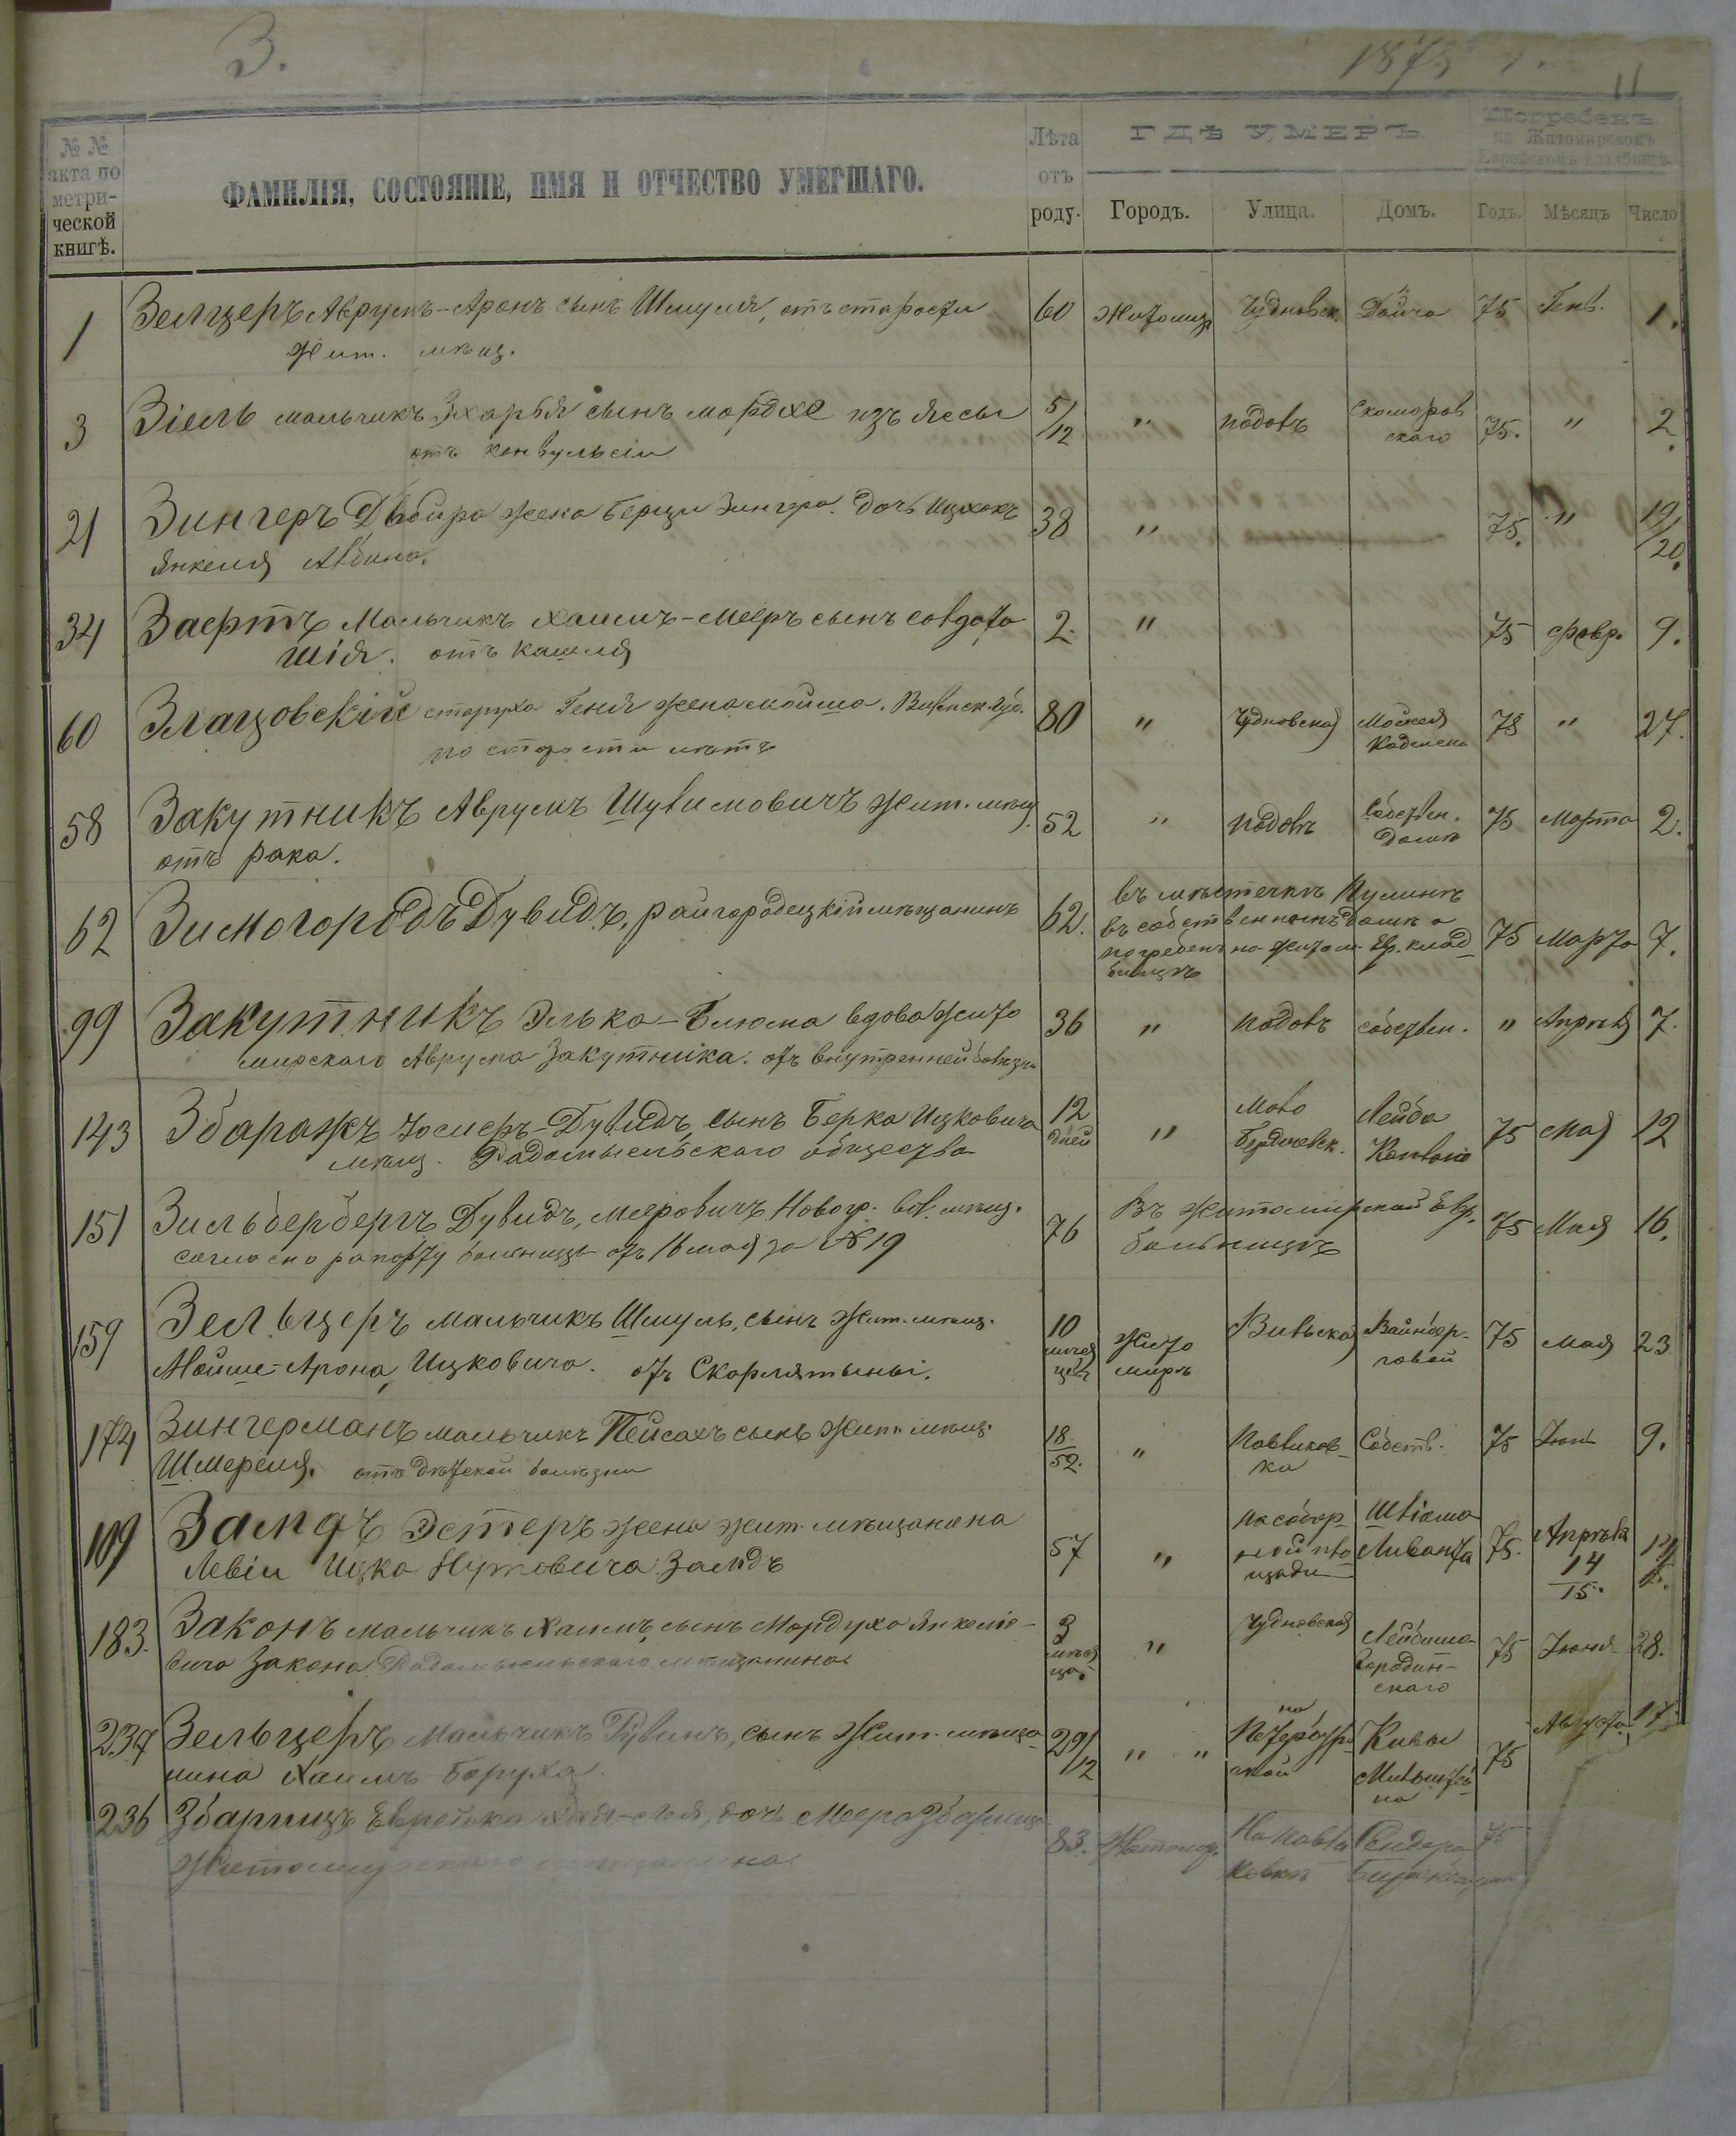 З.
1875 г.
11
№ № акта по метрической книгѣ.
ФАМИЛІЯ, СОСТОЯНІЕ, ИМЯ И ОТЧЕСТВО УМЕРШАГО.
Лѣта отъ роду.
ГДѢ УМЕРЪ
Городъ. Улица. Домъ.
Погребенъ на Житомирскомъ Еврейскомъ кладбищѣ
Годъ. Мѣсяцъ Число
1 Зелцеръ Аврумъ-Аронъ сынъ Шмуля, отъ старости 60 Житомиръ Чудновск. Дайча 75 Генв. 1.
Жит. мѣщ.
3 Зіель мальчикъ Зхарья сынъ Мордхе изъ Яссы 5/12 " подолъ Скоморов 75. " 2
отъ конвульсіи скаго
21 Зингеръ Двойра жена Берци Зингера. дочь Ицхокъ 38 " 75. " 19/20.
Янкеля Албина.
34 Заертъ Мальчикъ Хаимъ-Мееръ сынъ солдата 2. " 75 Февр. 9.
Шія. отъ кашля
60 Злацовскій старуха Геня жена Мойша. " 80 " Чудновская Мойсея 78 " 27.
по старости лѣтъ
58 Закутникъ Аврумъ Шулимовичъ Жит. мѣщ. 52 " подолъ Собствен. 75 Марта 2.
отъ рака. домъ
62 Зимогородъ Дувидъ, райгородецкій мѣщанинъ 62. въ мѣстечкѣ Пулинъ 75 Марта 7.
въ собственномъ домѣ а
погребенъ на Житом. Евр. клад
бищѣ
99 Закутникъ Элька-Блюма вдова Жито 36 " подолъ собствен. " Апрѣля 7.
мирскаго Аврума Закутника. отъ внутренней болѣзни
143 Збаражъ Іосперъ-Дувидъ, сынъ Берка Ицковича 12 дней " Мало Бердичевск. Лейба 75 Мая 12
мѣщ. Радомысльского общества
151 Зильбербергъ Дувидъ, Мееровичъ Новогр. вол. мѣщ. 76 Въ Житомирской Евр. 75 Мая 16.
согласно рапорту больницы отъ 16 мая за №19 больницѣ
159 Зельцеръ мальчикъ Шмуль, сынъ Жит. мѣщ. 10 мѣсяцевъ Житомиръ Вильская Вайнберговой 75 мая 23
Мойше-Арона Ицковича. отъ Скорлятыны.
174 Зингерманъ мальчикъ Пейсахъ сынъ Жит. мѣщ. 18/52. " Павликовка Собств. 75 Іюнь 9.
Шмереля. отъ дѣтской болѣзни
109 Замдъ Эстеръ жена жит. мѣщанина 57 " на соборной площади Ливанта 75. Апрѣля 14/15.
Левіи Ицка Нутовича Замдъ
183. Законъ мальчикъ Хаимъ, сынъ Мордуха Янкеле- 3 мѣсяца. " Чудновская Лейбиша Бородинскаго 75 Іюня 28.
вича Закона Радомысльскаго мѣщанина
234 Зельцеръ Мальчикъ Рувинъ, сынъ Жит. мѣща 2 9/12 " " на Петербургской Кивы 75 Августа 17.
нина Хаимъ Боруха.
236 Збарицъ Еврейка Хая-Лея, дочь Меера Збарица 83. Житомир. На Павликовкѣ Сендера 75
Житомирскаго мѣщанина.